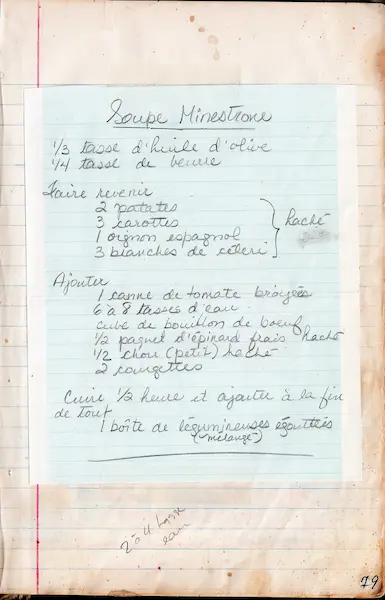 Soupe Minestrone
1/3 tasse d'huile d'olive
1/4 tasse de beurre
Faire revenir
2 patates
3 carottes
1 oignon espagnol
3 branches de céleri
haché
Ajouter
1 canne de tomate broyées
6 à 8 tasses d'eau
cube de bouillon de boeuf
1/2 paquet d'épinard frais haché
1/2 chou (petit) haché
2 courgettes
Cuire 1/2 heure et ajouter à la fin
de tout
1 boîte de légumineuses égouttés
(mélangé)
2 à 4 tasse
eau
79